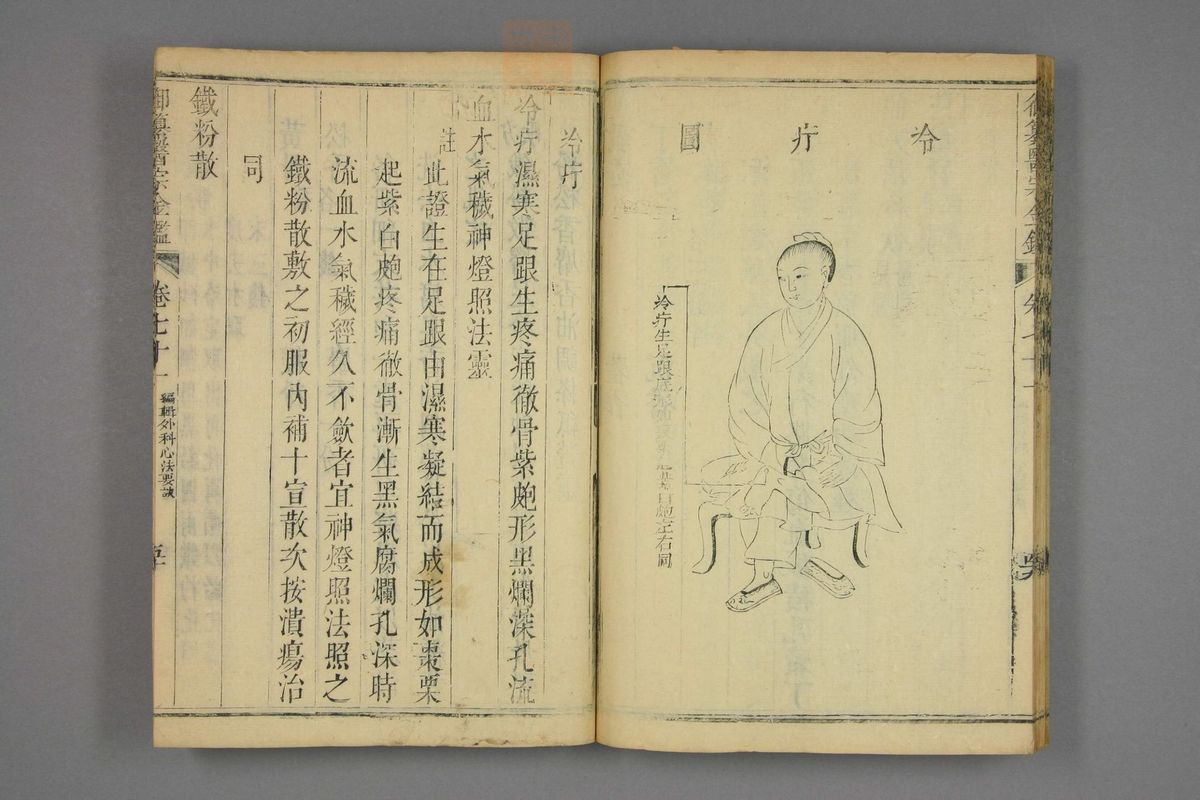 御纂醫宗金鑑
冷疔圖
冷疔生足跟底
白皰左右同
冷疔
冷疔濕寒足跟生疼痛徹骨紫皰形黑爛深孔流
血水氣穢神燈照法靈
註此證生在足跟由濕寒凝結而成形如棗栗
起紫白皰疼痛徹骨漸生黑氣腐爛孔深時
流血水氣穢經久不斂者宜神燈照法照之
鐵粉散敷之初服內補十宣散次按潰瘍治
同
鐵粉散
御纂醫宗金鑑
卷七十一
編輯外科心法要訣